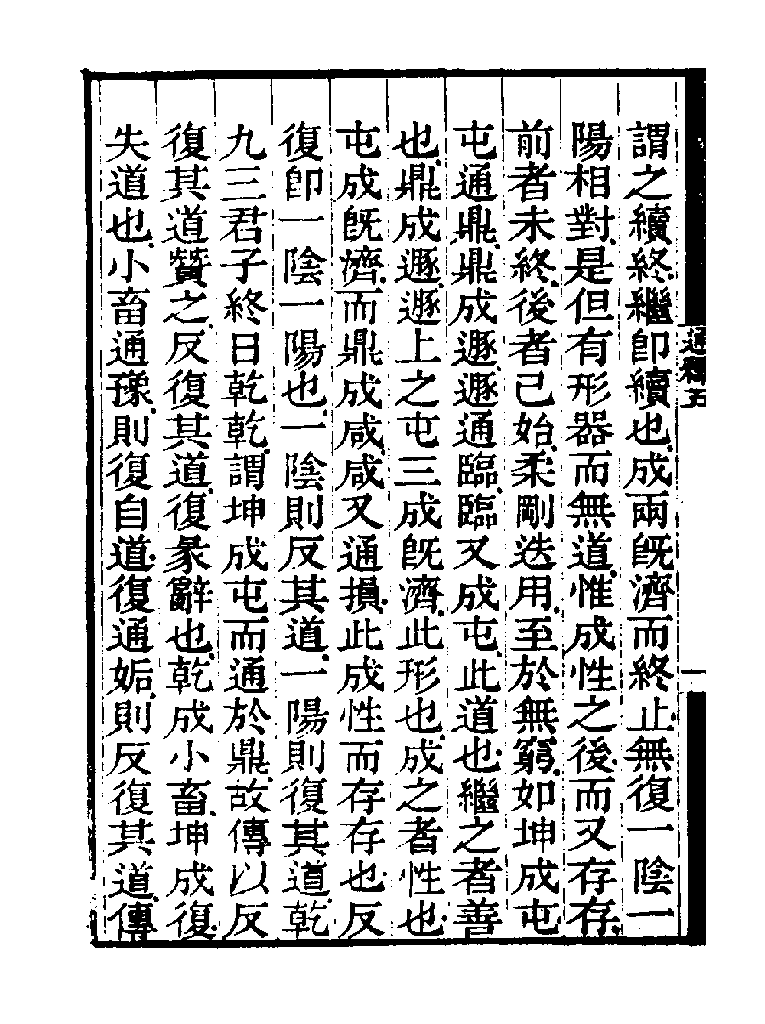 謂之續終繼卽續也成兩旣濟而終止無復一陰一
陽相對是但有形器而無道惟成性之後而又存存
前者未終後者已始柔剛迭用至於無窮如坤成屯
屯通鼎鼎成遯遯通臨臨又成屯此道也繼之者善
也鼎成遯遯上之屯三成旣濟此形也成之者性也
屯成旣濟而鼎成咸咸又通損此成性而存存也反
復卽一陰一陽也一陰則反其道一陽則復其道乾
九三君子終日乾乾謂坤成屯而通於鼎故傳以反
復其道贊之反復其道復彖辭也乾成小畜坤成復
失道也小畜通豫則復自道復通姤則反復其道傳
通釋五
一